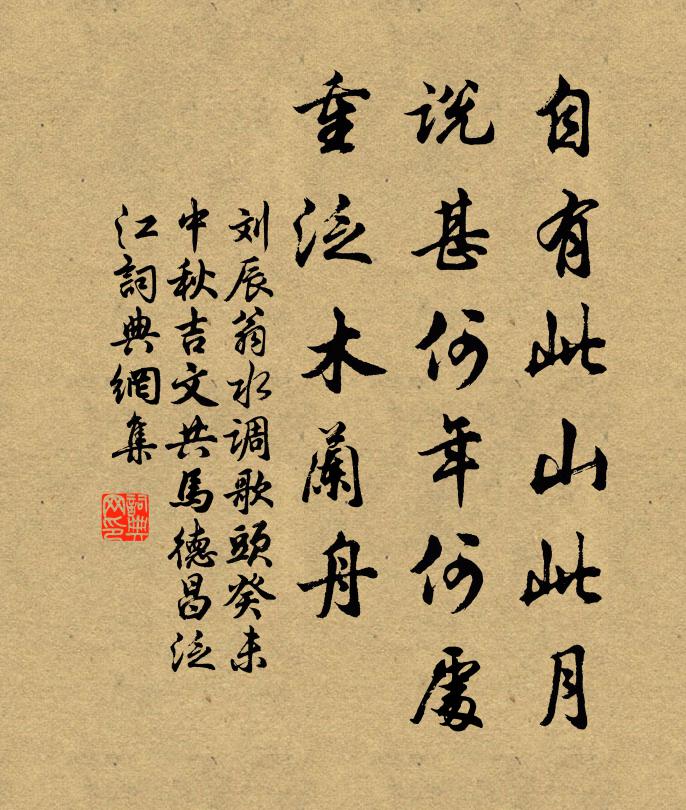 自有此山此月
说甚何年何處
重泛木蘭舟
刘辰翁水调歌頭癸未
中秋吉文共馬德昌泛
江詞典網集
詞典
网印